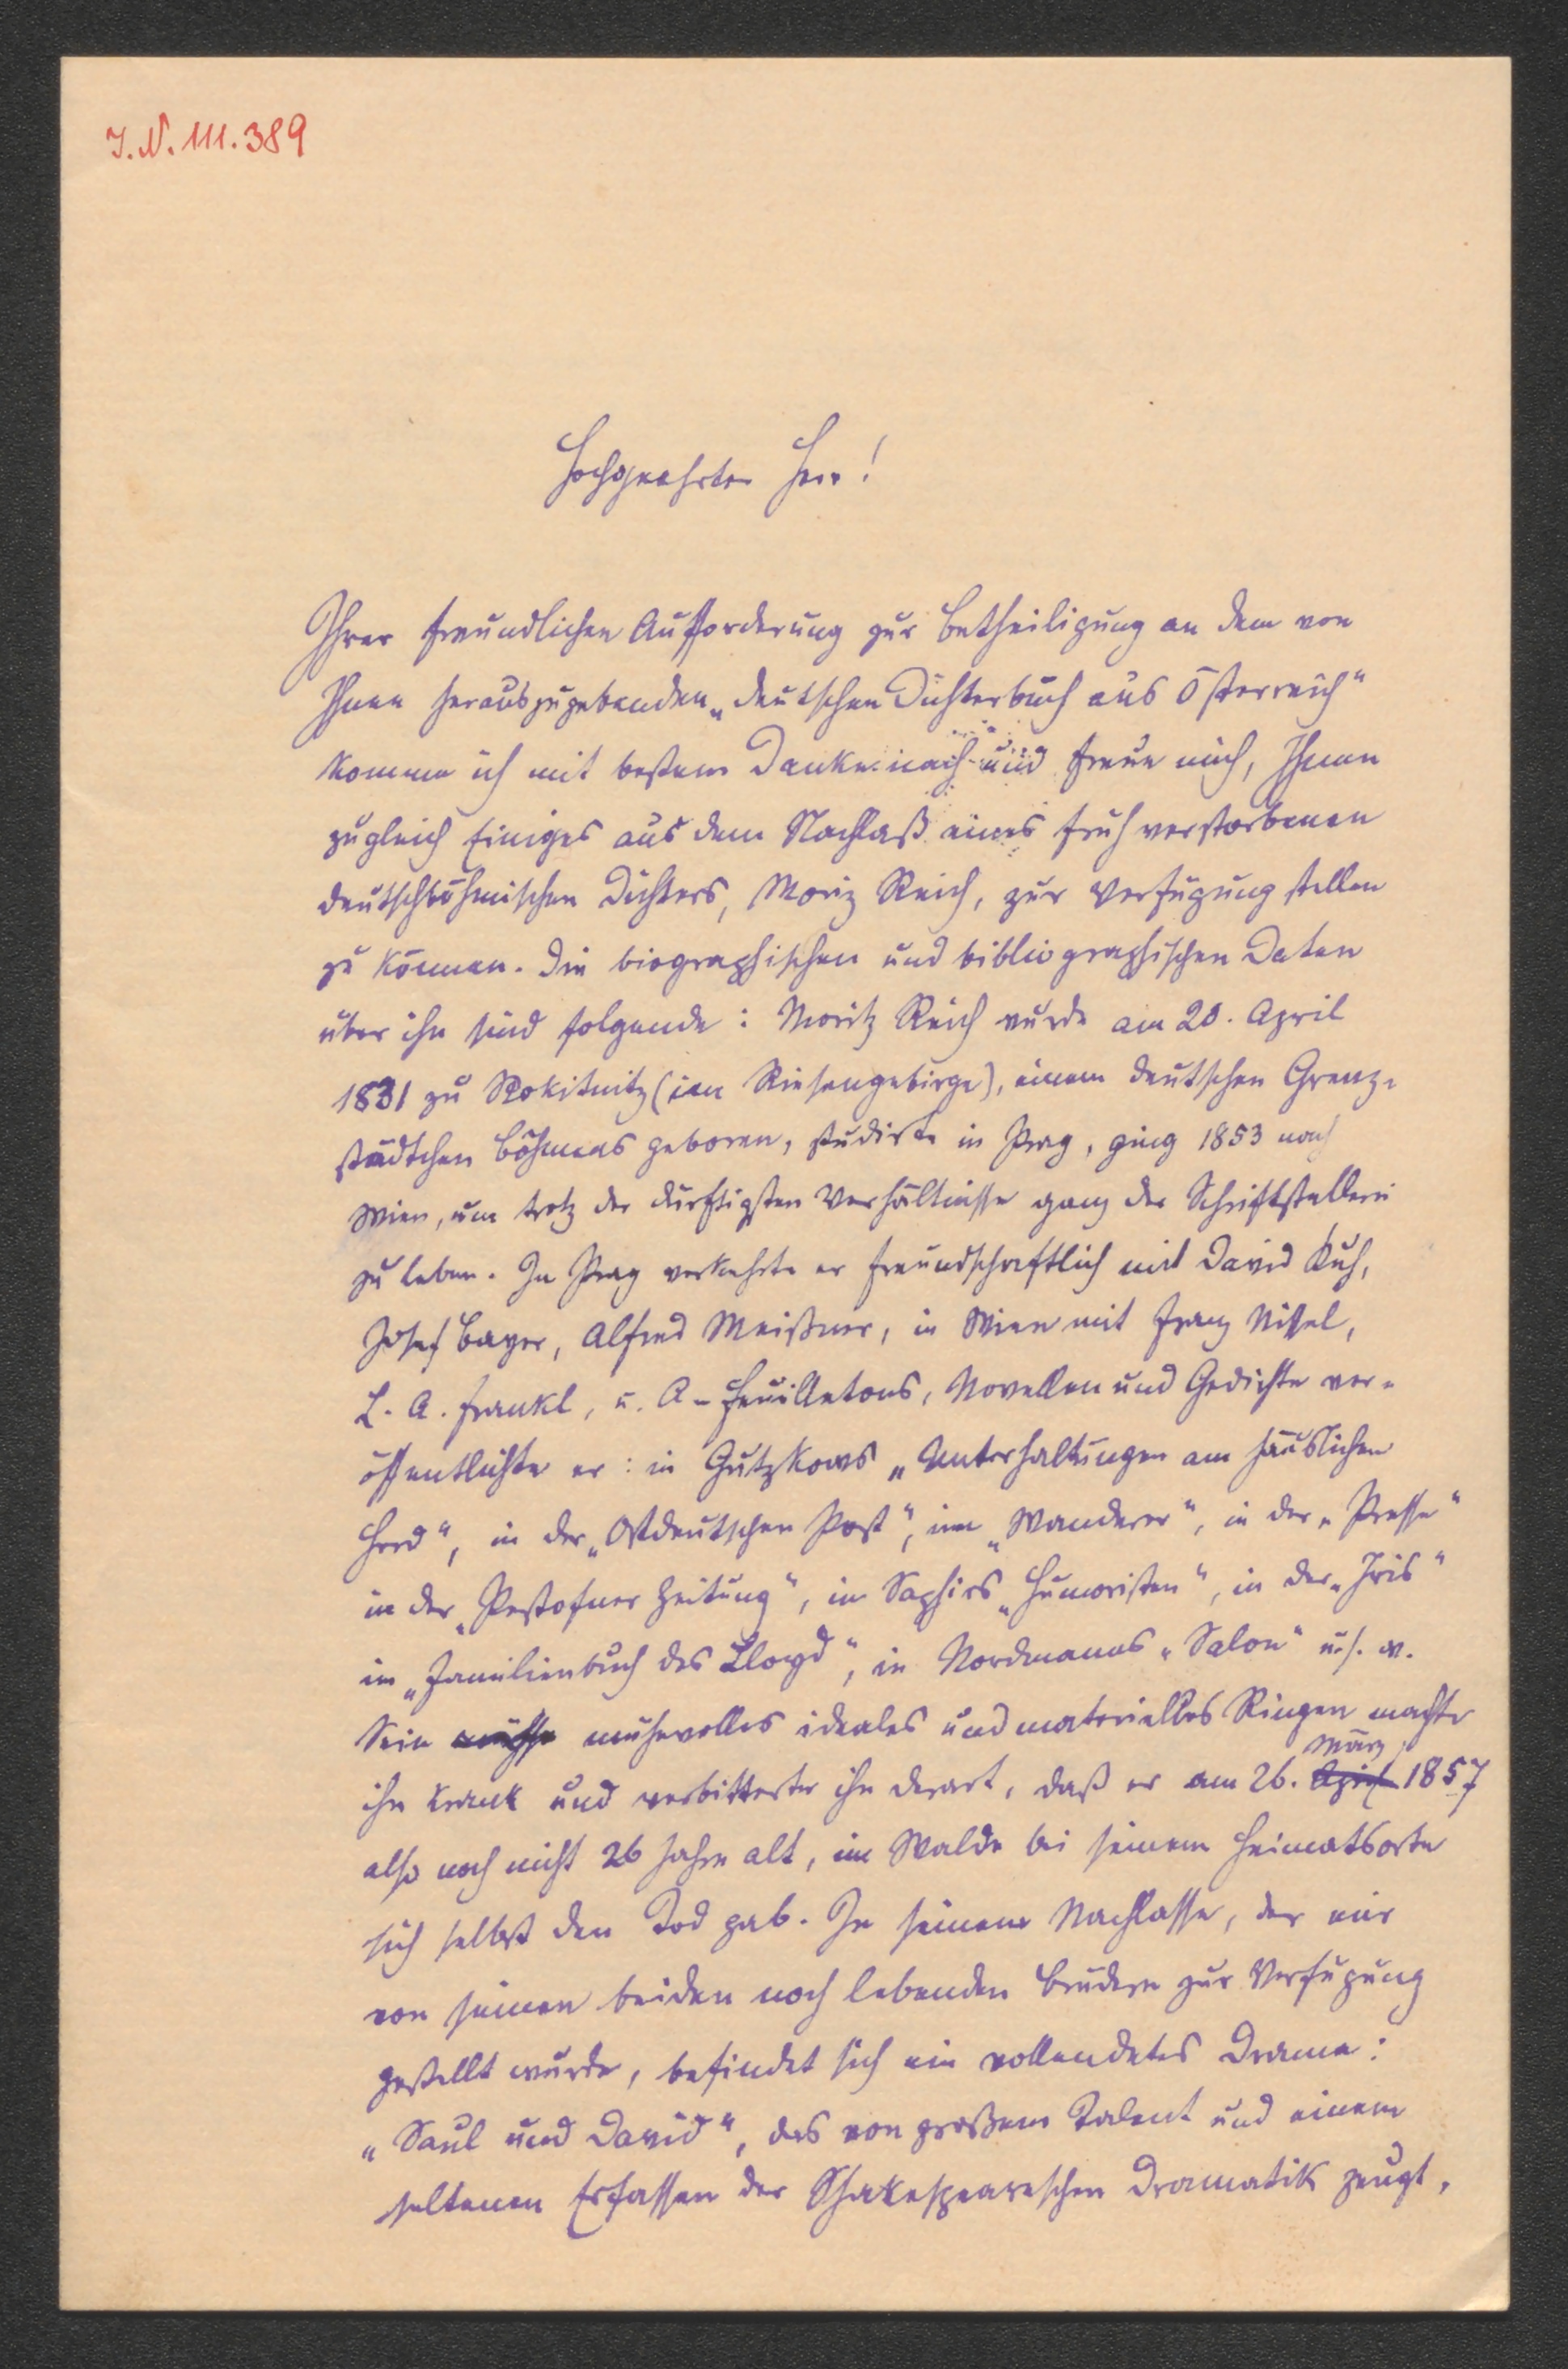 I.N. 111.389
Hochgeehrter Herr!
Ihrer freundlichen Aufforderung zur Betheiligung an dem von
Ihnen herauszugebenden „deutschen Dichterbuch aus Österreich“
komme ich mit bestem Danke nach und freue mich, Ihnen
zugleich Einiges aus dem Nachlaß eines früh verstorbenen
deutschböhmischen Dichters, Moriz Reich, zur Verfügung stellen
zu können. Die biographischen und bibliographischen Daten
über ihn sind folgende: Moritz Reich wurde am 20. April
1831 zu Rokitnitz (im Riesengebirge), einem deutschen Grenz-
städtchen Böhmens geboren, studirte in Prag, ging 1853 nach
Wien, um trotz der dürftigsten Verhältnisse ganz der Schriftstellerei
zu leben. In Prag verkehrte er freundschaftlich mit David Kuh,
Josef Bayer, Alfred Meißner, in Wien mit Franz Nissel,
L. A. Frankl, u. A. – Feuilletons, Novellen und Gedichte ver-
öffentlichte er: in Gutzkows „Unterhaltungen am häuslichen
Herd“, in der „Ostdeutschen Post“, im „Wanderer“, in der „Presse“
in der „Pestofner Zeitung“, in Saphirs „Humoristen“, in der „Iris“
im „Familienbuch des Lloyd“, in Nordmanns „Salon“ u. s. w.
Sein mühevolles ideales und materielles Ringen machte
ihn krank und verbitterte ihn derart, daß er am 26. April März 1857
also noch nicht 26 Jahre alt, im Walde bei seinem Heimatsorte
sich selbst den Tod gab. In seinem Nachlasse, der mir
von seinen beiden noch lebenden Brüdern zur Verfügung
gestellt wurde, befindet sich ein vollendetes Drama:
„Saul und David“, das von großem Talent und einem
seltenen Erfassen der Shakespeareschen Dramatik zeugt,